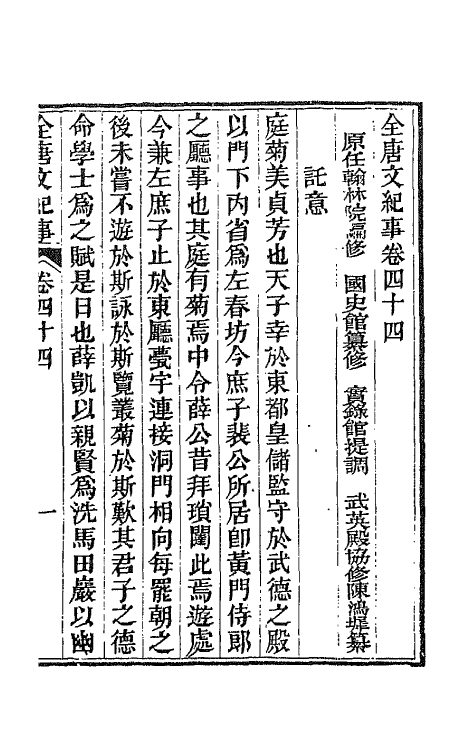 全唐文紀事卷四十四
原任翰林院編修　國史館纂修　實錄館提調　武英殿協修陳鴻墀纂
託意
庭菊美貞芳也天子幸於東都皇儲監守於武德之殿
以門下內省爲左春坊今庶子裴公所居卽黃門侍郎
之廳事也其庭有菊焉中令薛公昔拜瑣闈此焉遊處
今兼左庶子止於東廳甍宇連接洞門相向每罷朝之
後未嘗不遊於斯詠於斯覽叢菊於斯歎其君子之德
命學士爲之賦是日也薛凱以親賢爲洗馬田巖以幽
全唐文紀事　卷四十四　一